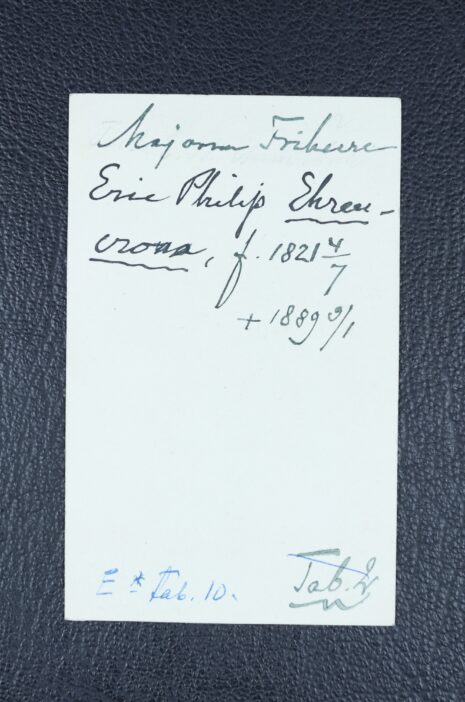 Majoren Friherre
Eric Philip Ehren-
crona, f. 1821 4/7
+ 1889 9/1
E * Tab. 10.
Tab. 2